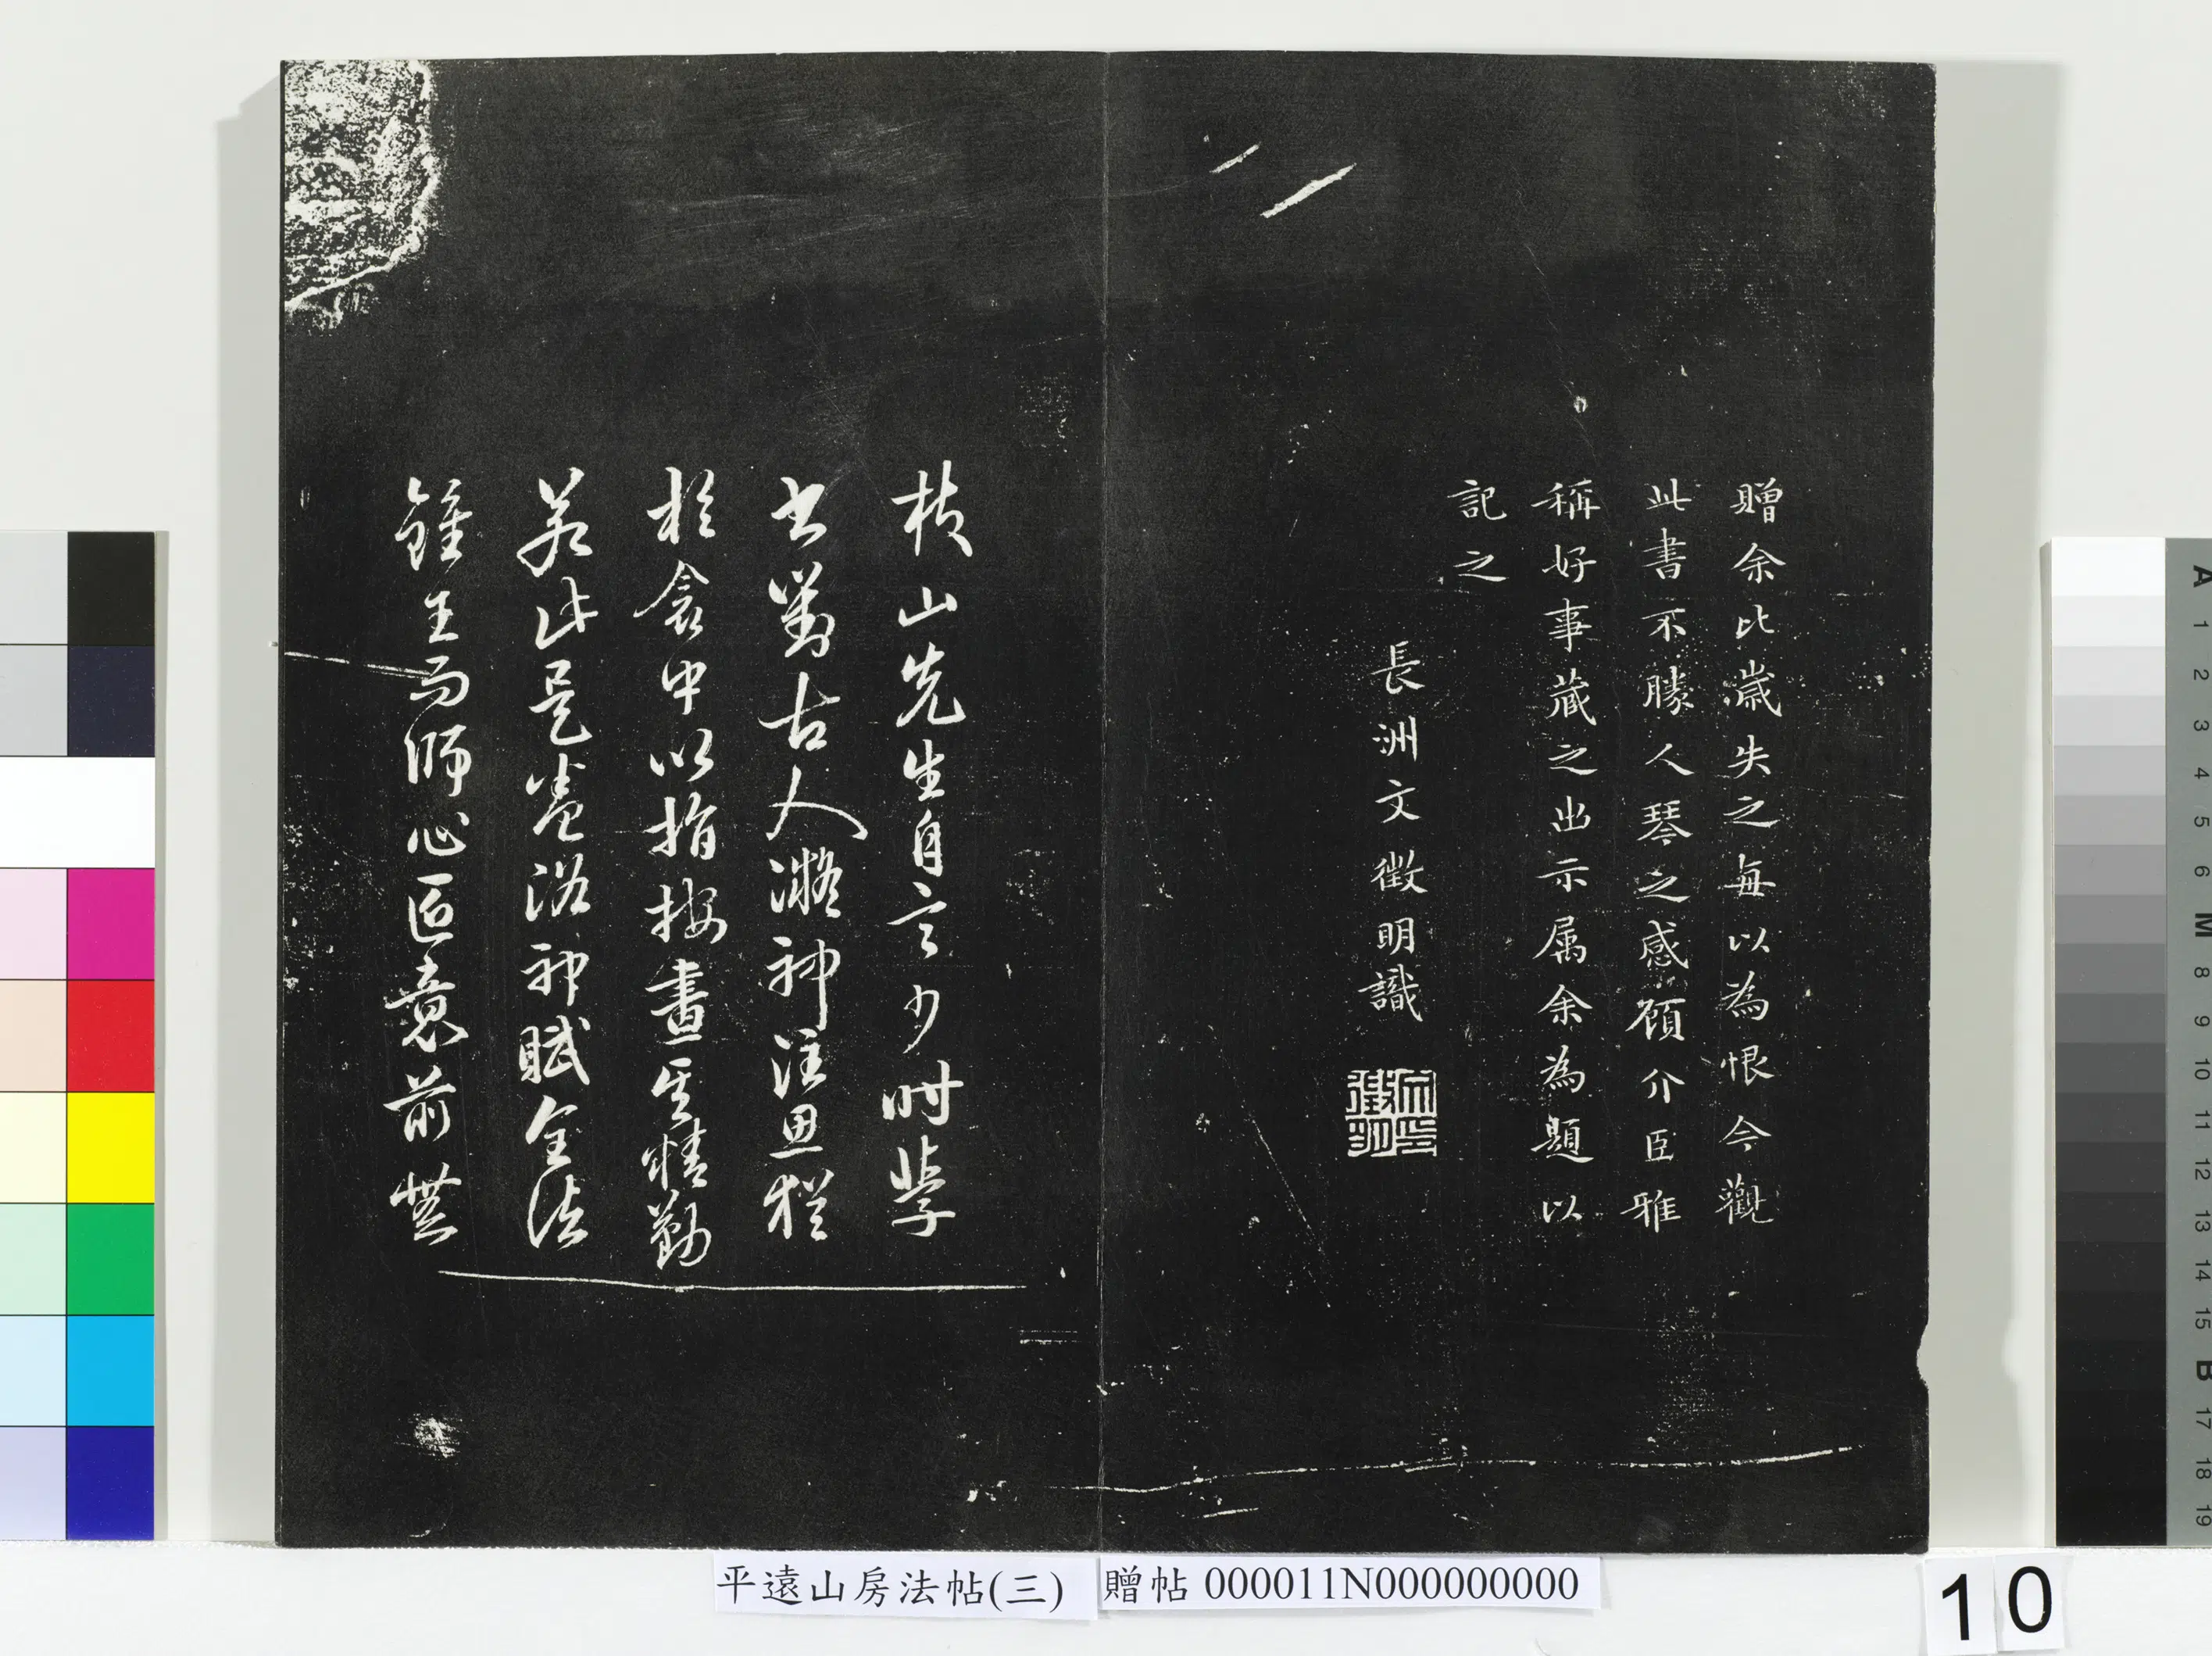 贈余比歲失之每以為恨今觀
此書不勝人琴之感顧介臣雅
稱好事藏之出示属余為題以
記之
長洲文徵明識
枝山先生自言少時學
書對古人凝神注思猶
於衾中以指按畫其精勤
若此是卷洛神賦全法
鍾王而師心匠意前無
平遠山房法帖(三)
贈帖 000011N000000000
10
A 1 2 3 4 5 6 M 8 9 10 11 12 13 14 15 B 17 18 19